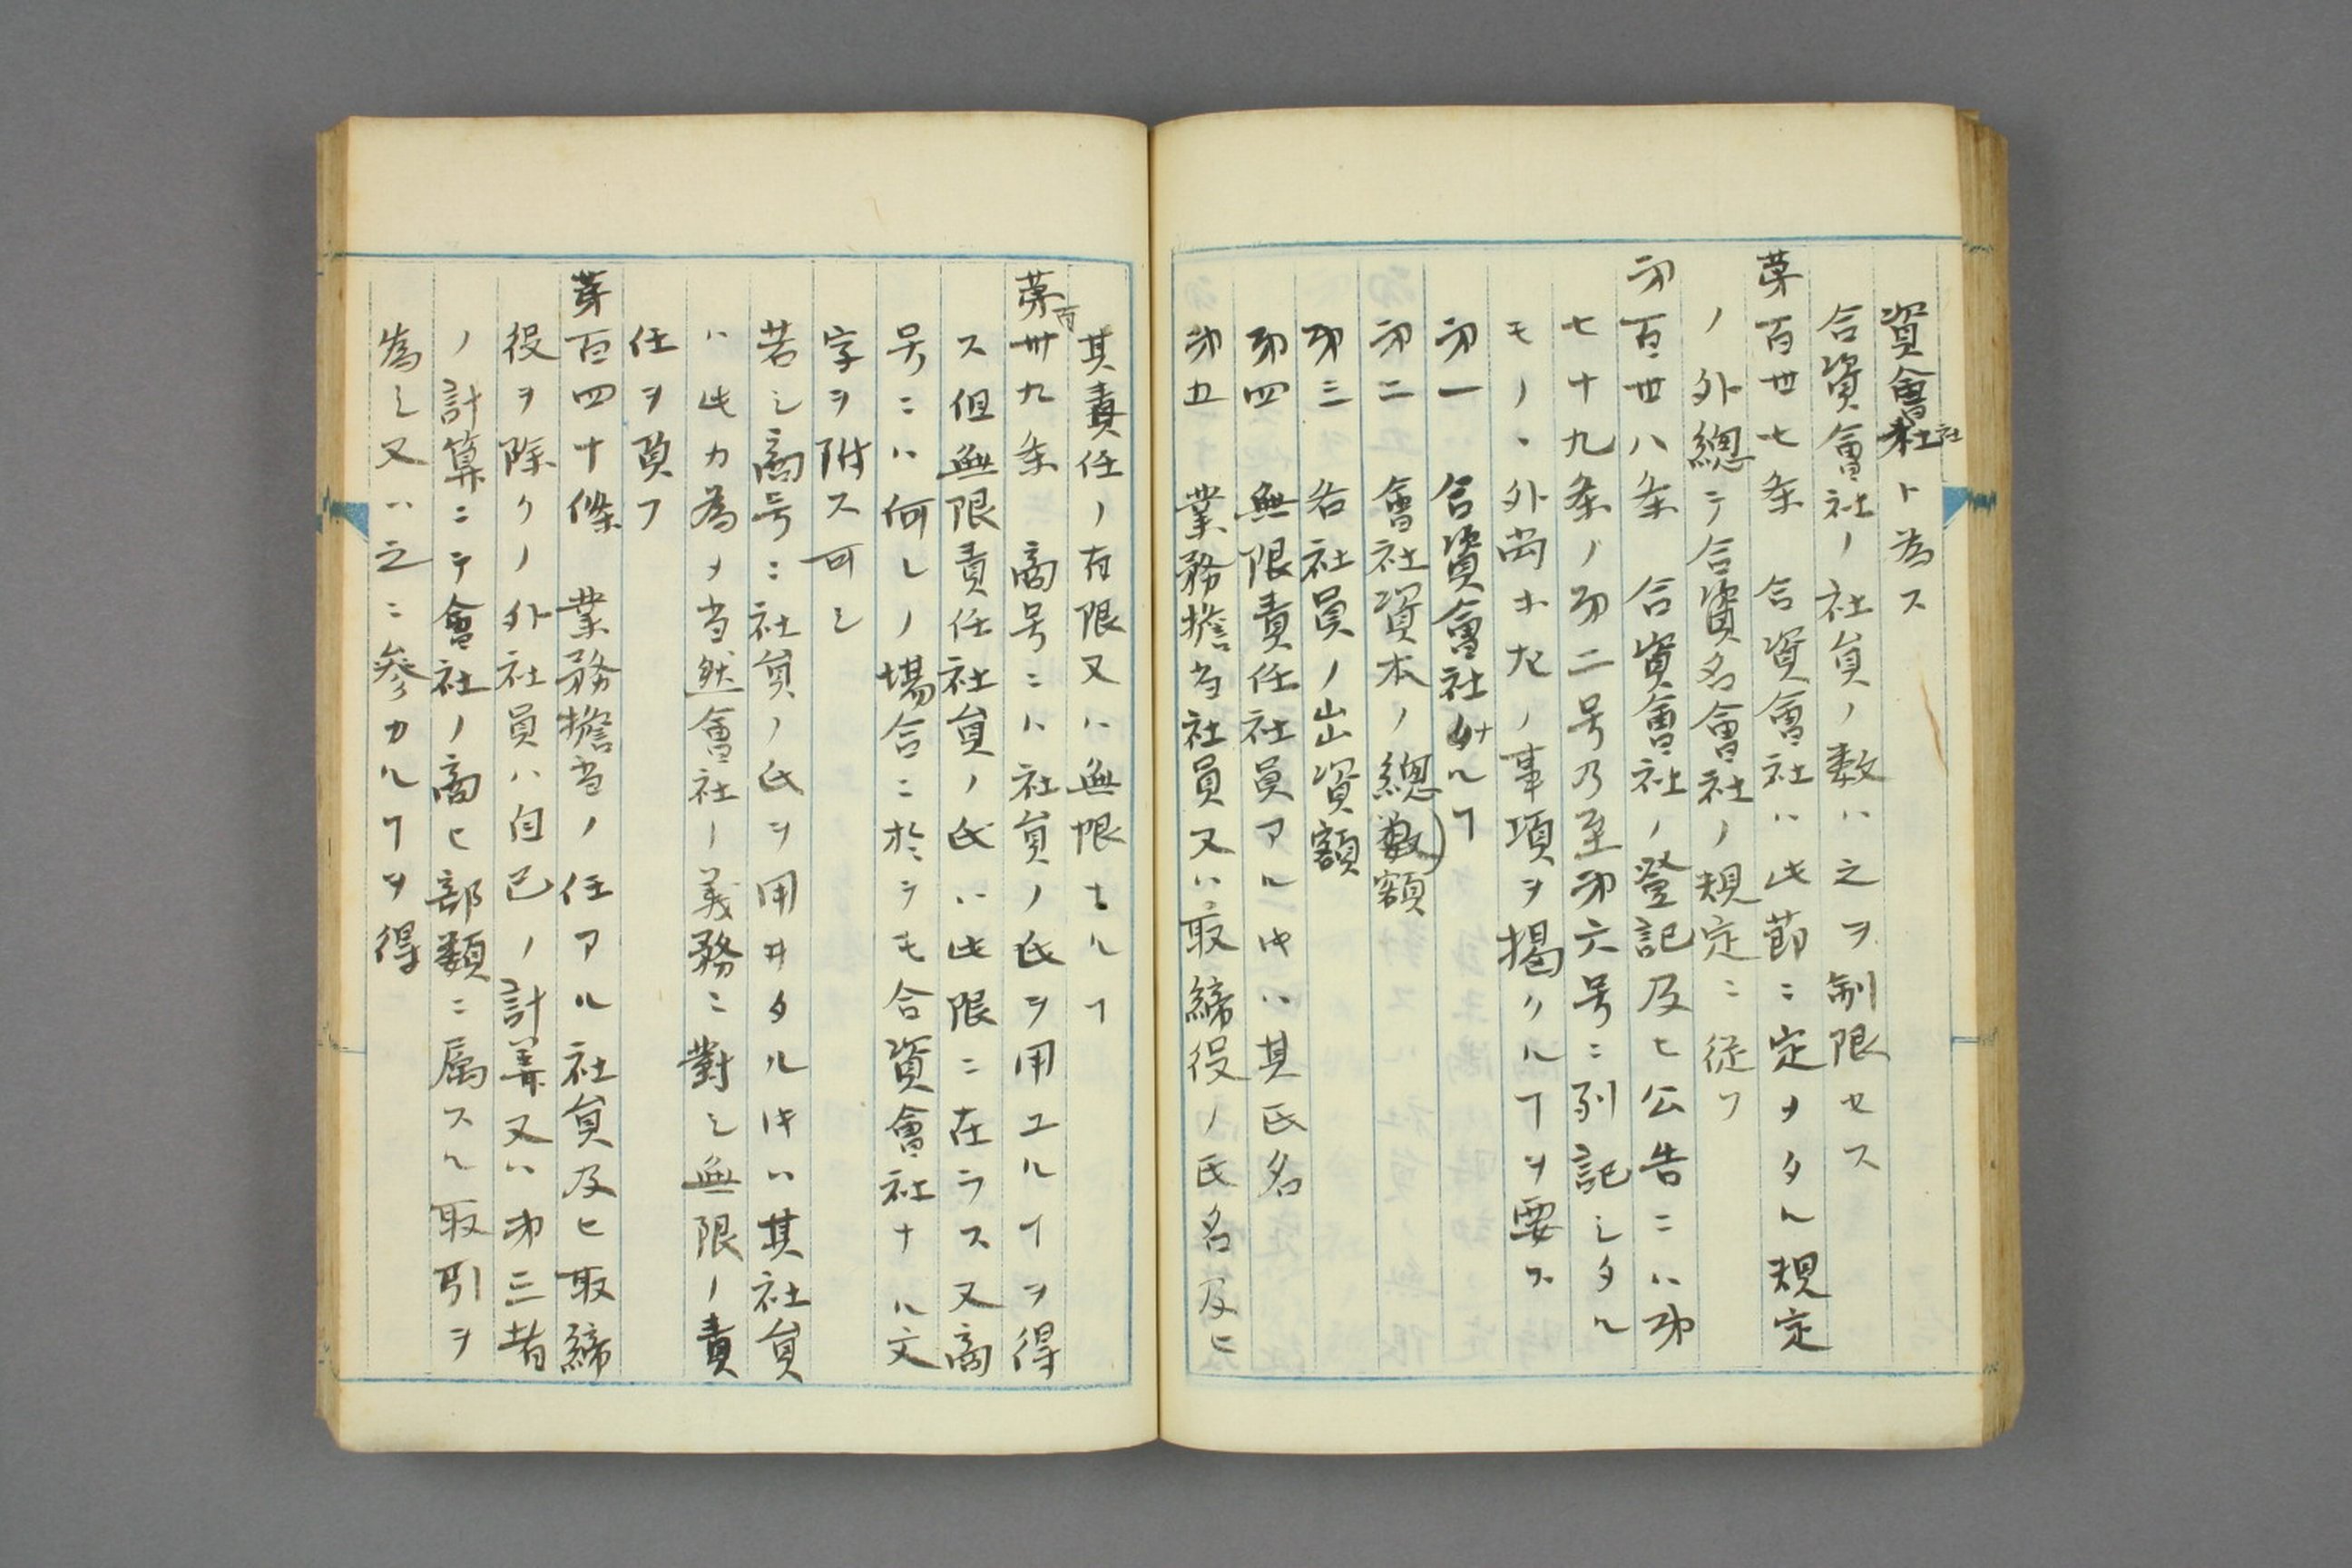 資會社ト為ス
合資會社ノ社員ノ数ハ之ヲ制限セス
第百卅七条 合資會社ハ此節ニ定メタル規定
ノ外總テ合資名會社ノ規定ニ従フ
第百卅八条 合資會社ノ登記及ヒ公告ニハ第
七十九条ノ第二号乃至第六号ニ列記シタル
モノヽ外尚ホ左ノ事項ヲ掲クルヿヲ要ス
第一 合資會社ナルヿ
第二 會社資本ノ總数額
第三 各社員ノ出資額
第四 無限責任社員アルトキハ其氏名
第五 業務擔当社員又ハ取締役ノ氏名及ヒ
其責任ノ有限又ハ無限ナルヿ
第百卅九条 商号ニハ社員ノ氏ヲ用ユルヿヲ得
ス但無限責任社員ノ氏ハ此限ニ在ラス又商
号ニハ何レノ場合ニ於テモ合資會社ナル文
字ヲ附ス可シ
若シ商号ニ社員ノ氏ヲ用ヰタルトキハ其社員
ハ此カ為メ当然會社ノ義務ニ對シ無限ノ責
任ヲ負フ
第百四十條 業務擔当ノ任アル社員及ヒ取締
役ヲ除クノ外社員ハ自己ノ計算又ハ第三者
ノ計算ニテ會社ノ商ヒ部類ニ属スル取引ヲ
為シ又ハ之ニ參カルヿヲ得